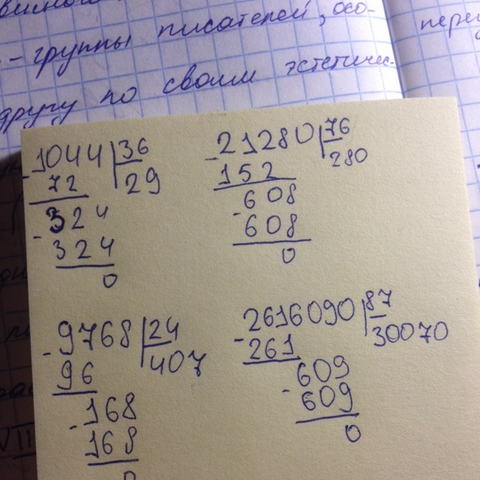 - группы писателей, осо-
другу по своим эстетичес-
1044 | 36
72 | 29
- 324
324
0
- 21280 | 76
152 | 280
- 608
608
0
- 9768 | 24
96 | 407
- 168
168
0
- 2616090 | 87
261 | 30070
- 609
609
0